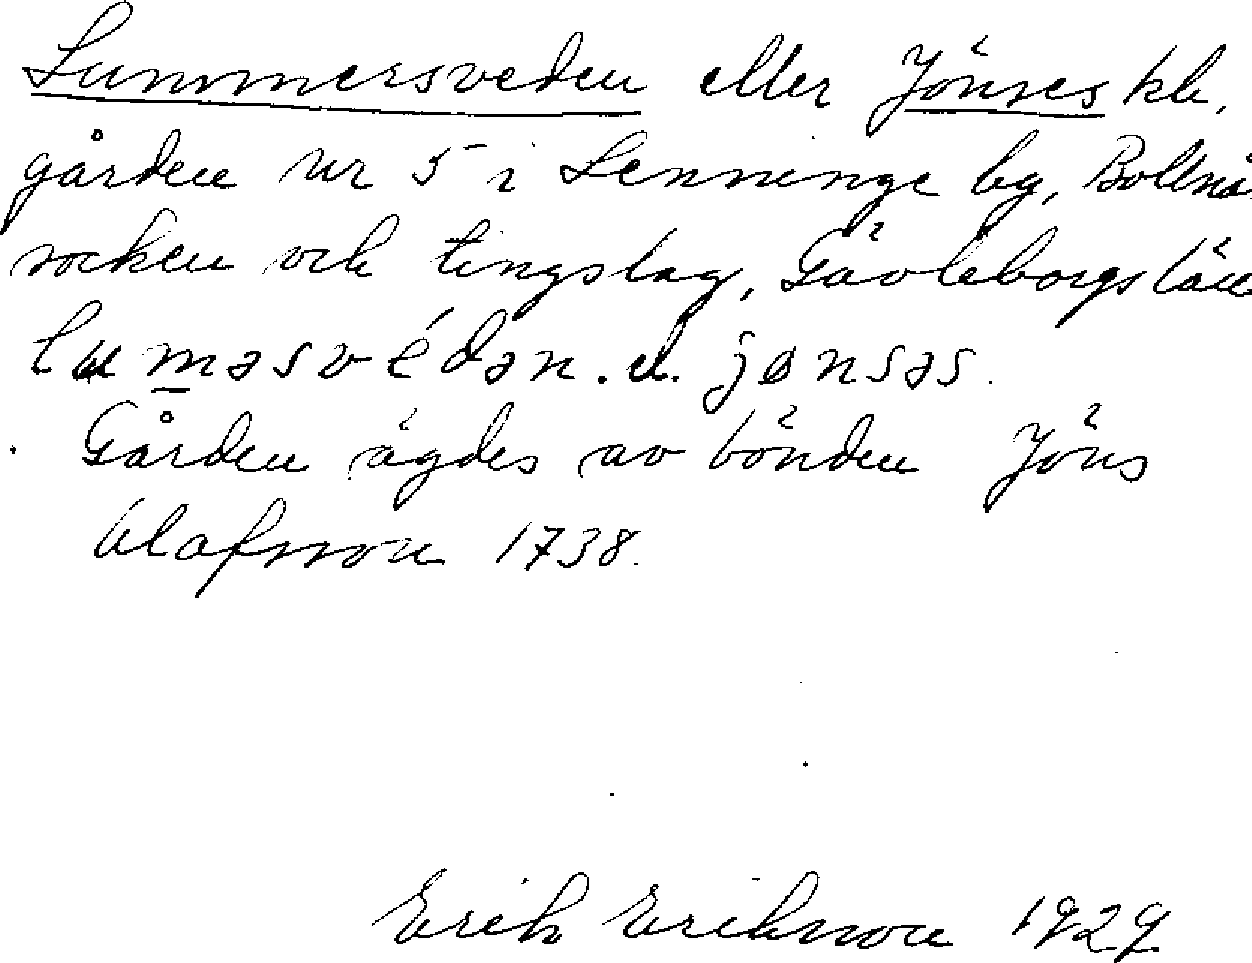 Lummersveden eller Jönses kb.
gården nr 5 i Lenninge by, Bollnä
socken och tingslag, Gävleborgs län
luməsvédən. u. jønsəs.
Gården ägdes av bonden Jöns
Olofsson 1738.
Erik Eriksson 1929